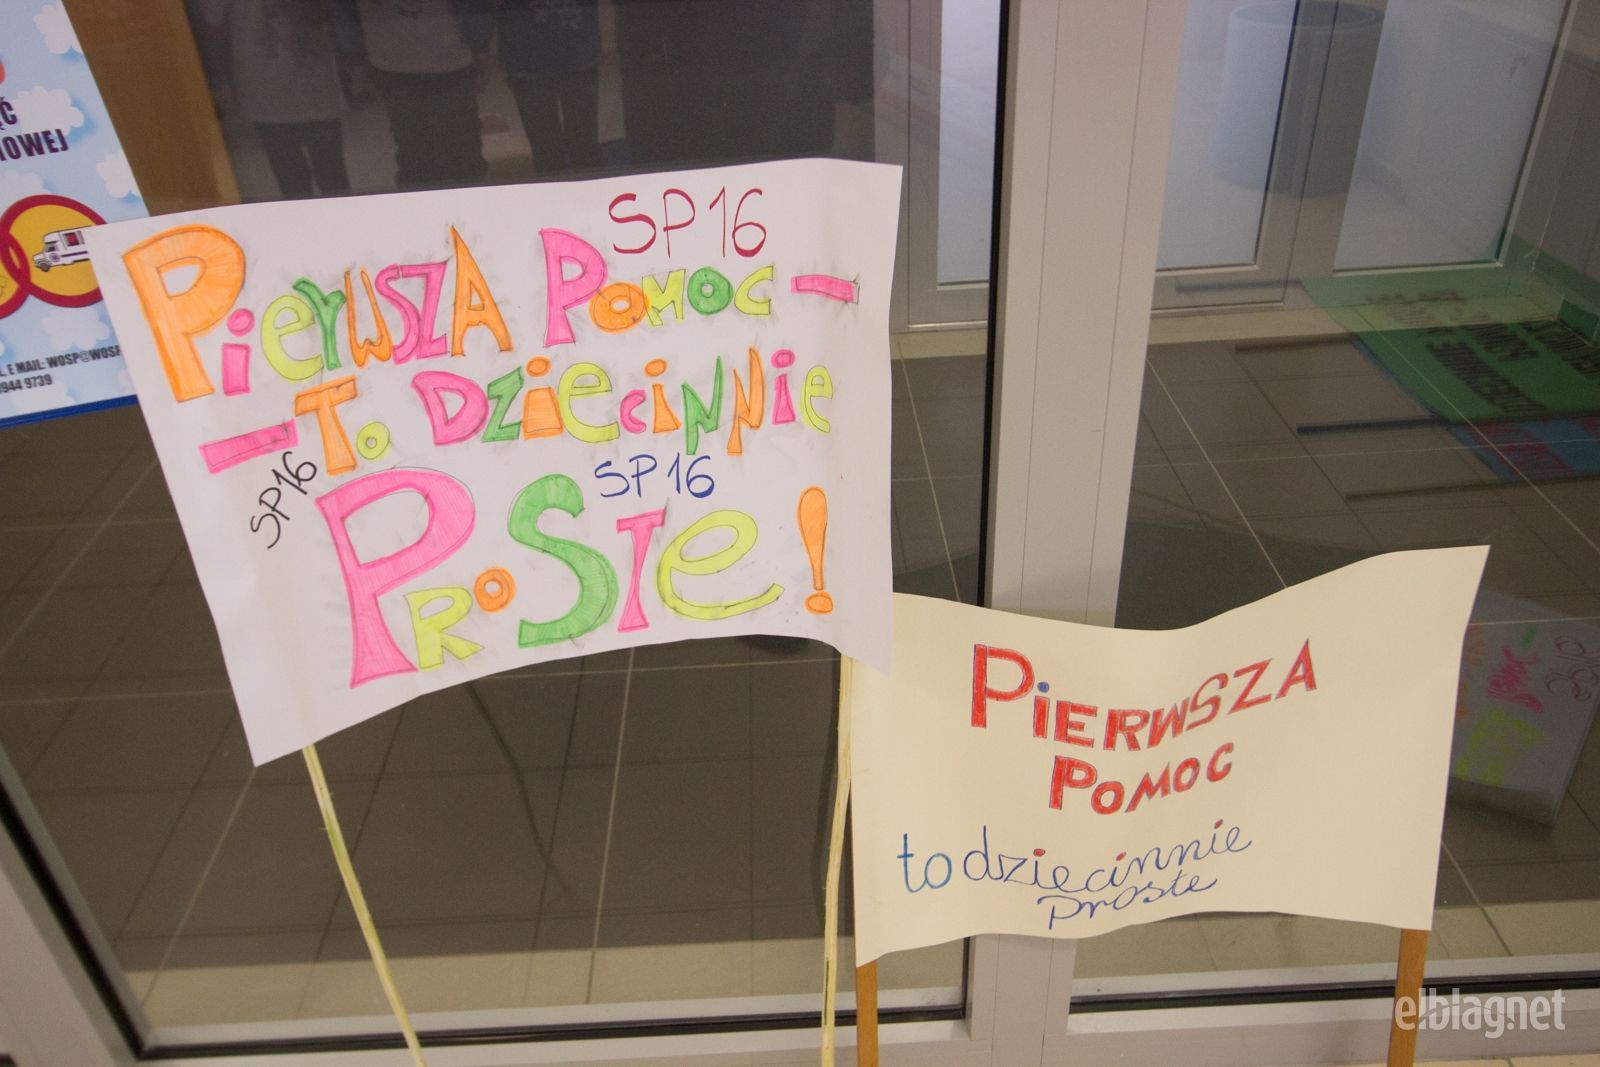 Ć
OWEJ
E MAIL: WOSP@WOSP
944 9739
SP16
PIERWSZA POMOC –
– TO DZIECINNIE
SP16
SP16
PROSTE!
PIERWSZA
POMOC
to dziecinnie
proste
elblag.net